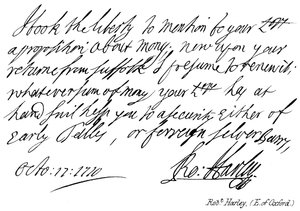 I took the liberty to mention to your Lᵈᵖ
a proposition about mony. now upon your
returne from suffolk I presume to renew it.
whatever sum of mony your Lᵈᵖ has at
hand I will help you to account either of
Early Tallies, or forreign silver
Octo: 17: 1710 Ro. Harley
Robᵗ. Harley. (E. of Oxford.)